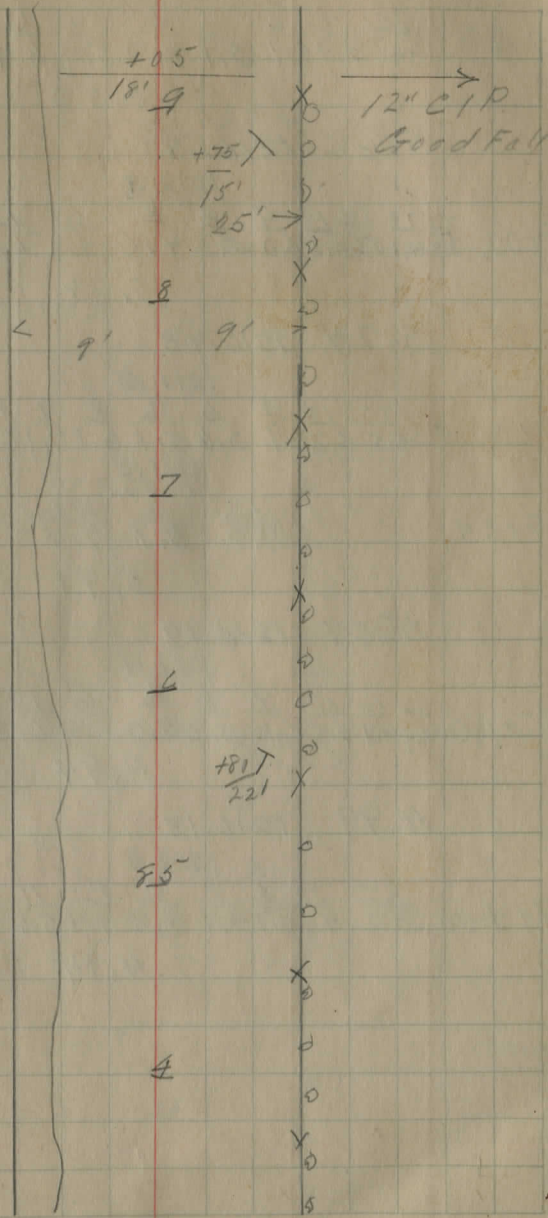 +05
18'
9
12" C I P
Good Fall
+75
15'
25'
8
9' 9'
7
6
+81
22'
85
4